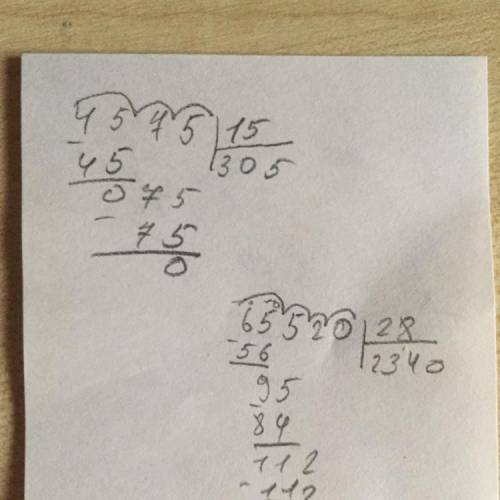 4575 15
-45 305
075
- 75
0
65520 28
-56 2340
95
-84
112
-112